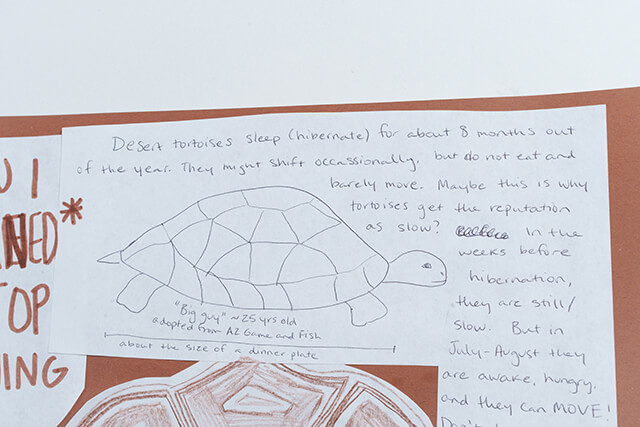 Desert tortoises sleep (hibernate) for about 8 months out
of the year. They might shift occassionally, but do not eat and
barely move. Maybe this is why
tortoises get the reputation
as slow? In the
weeks before
hibernation,
they are still/
slow. But in
July-August they
are awake, hungry,
and they can MOVE!
"Big guy" ~25 yrs old
adopted from AZ Game and Fish
about the size of a dinner plate
U I
NED*
TOP
ING